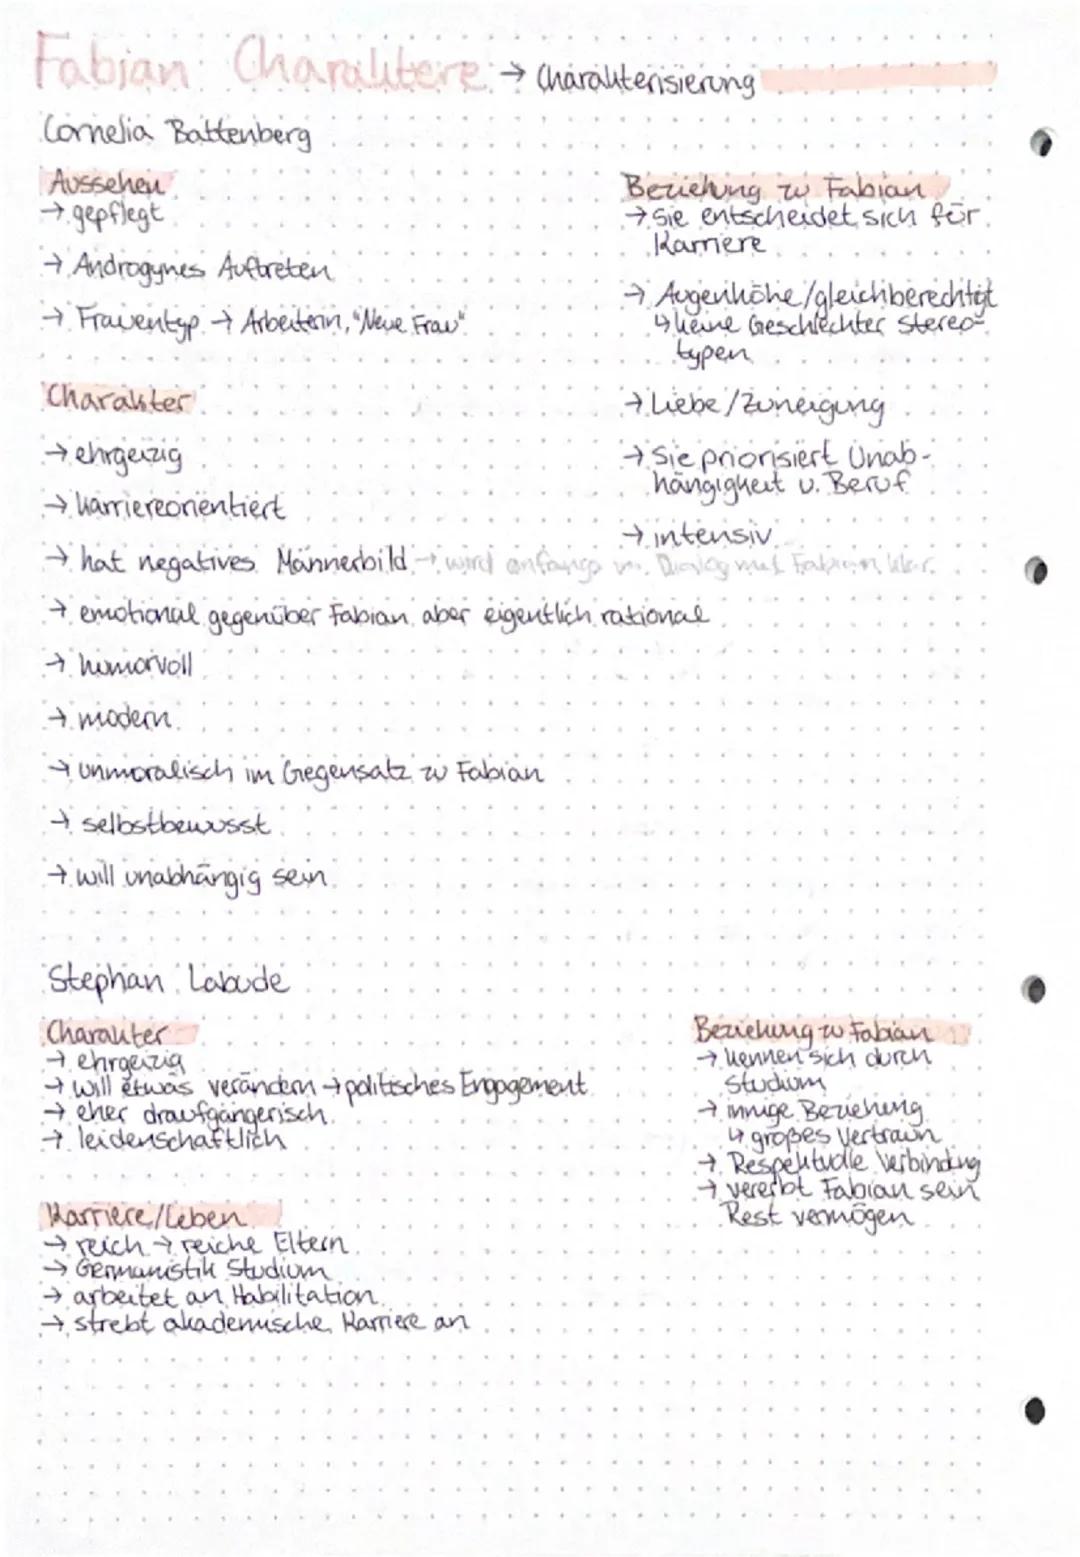 Fabian Charaktere → Charakterisierung
Cornelia Battenberg
Aussehen
→ gepflegt
→ Androgynes Auftreten
→ Frauentyp → Arbeiterin, "Neue Frau"
Charakter
→ ehrgeizig
→ karriereorientiert
→ hat negatives Männerbild → wird anfangs im Dialog mit Fabian klar
→ emotional gegenüber Fabian aber eigentlich rational
→ humorvoll
→ modern
→ unmoralisch im Gegensatz zu Fabian
→ selbstbewusst
→ will unabhängig sein
Beziehung zu Fabian
→ Sie entscheidet sich für
Karriere
→ Augenhöhe/gleichberechtigt
↳ keine Geschlechter Stereo-
typen
→ Liebe/Zuneigung
→ Sie priorisiert Unab-
hängigkeit u. Beruf
→ intensiv
Stephan Labude
Charakter
→ ehrgeizig
→ will etwas verändern → politisches Engagement
→ eher draufgängerisch
→ leidenschaftlich
Karriere/Leben
→ reich → reiche Eltern
→ Germanistik Studium
→ arbeitet an Habilitation
→ strebt akademische Karriere an
Beziehung zu Fabian
→ kennen sich durch
Studium
→ innige Beziehung
↳ großes Vertraun
→ Respektvolle Verbindung
→ vererbt Fabian sein
Rest vermögen